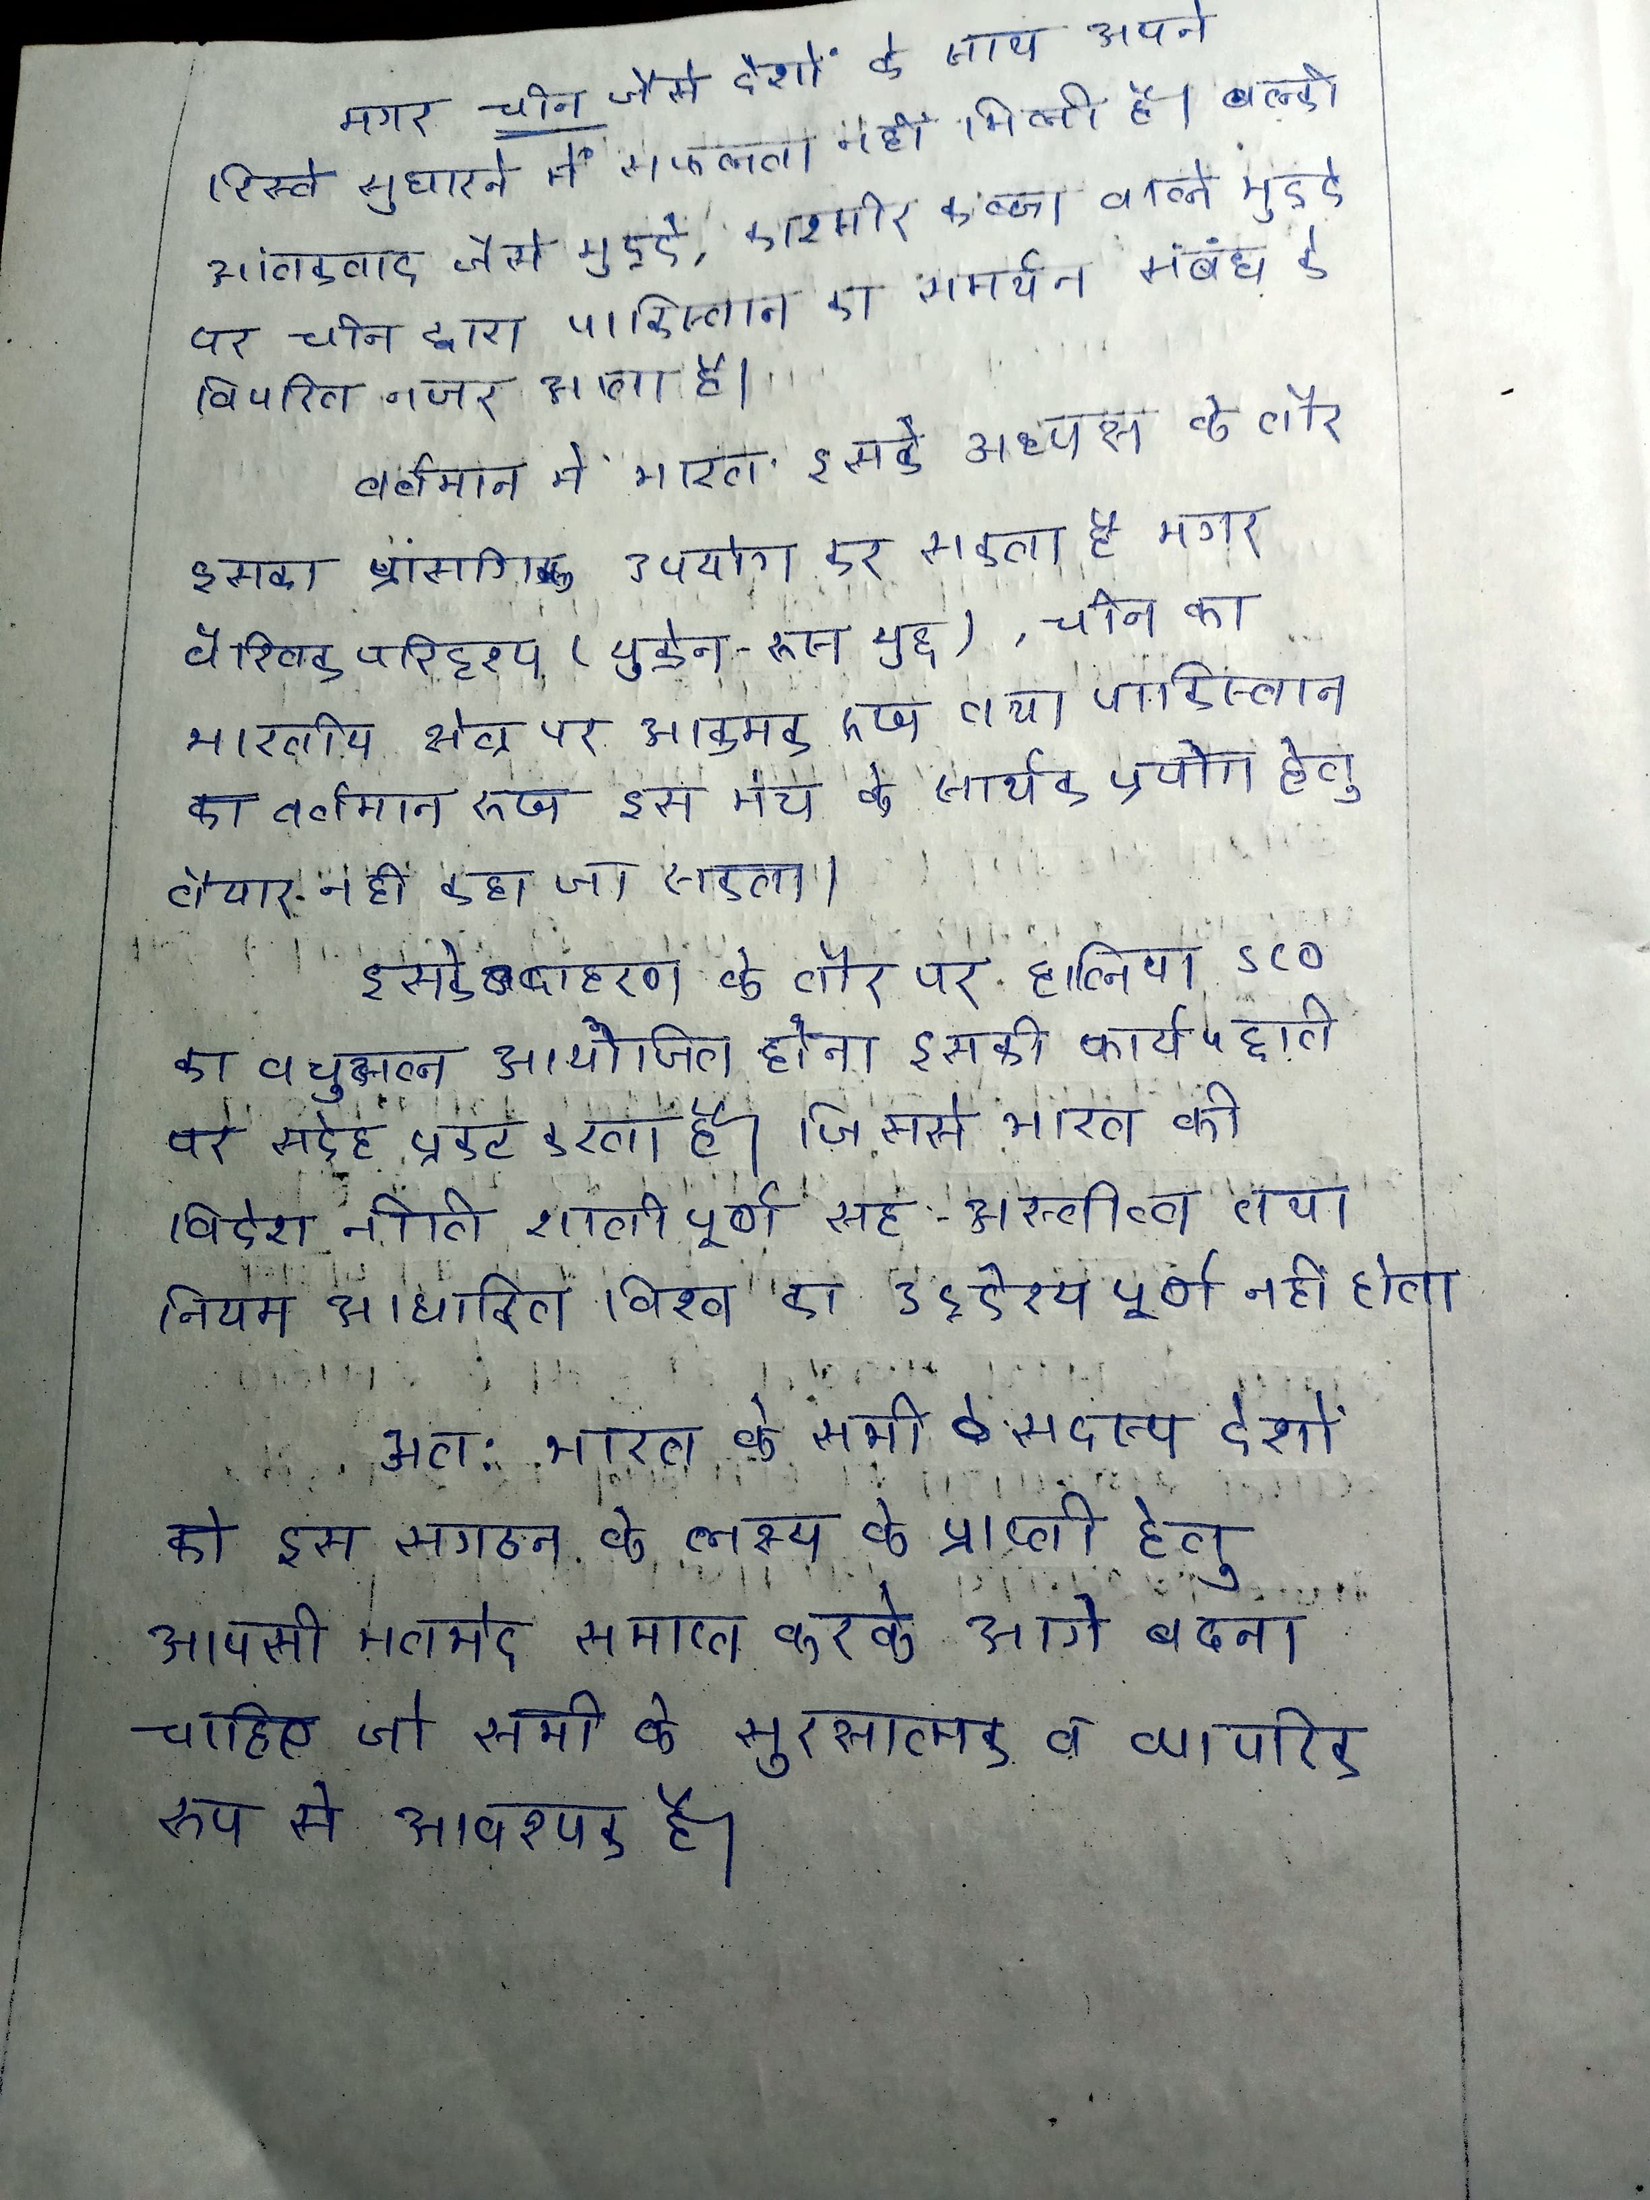 मगर चीन जैसे देशों के साथ अपने
रिस्ते सुधारने में सफलता नहीं मिली है। बल्की
आंतकवाद जैसे मुद्दे, काश्मीर कब्जा वाले मुद्दे
पर चीन द्वारा पाकिस्तान का समर्थन संबंध के
विपरित नजर आता है।
वर्तमान में भारत इसके अध्यक्ष के तौर
इसका प्रांसगिक उपयोग कर सकता है मगर
वैश्विक परिदृश्य (युक्रेन-रूस युद्ध), चीन का
भारतीय क्षेत्र पर आक्रमक रूख तथा पाकिस्तान
का वर्तमान रूख इस मंच के सार्थक प्रयोग हेतु
तैयार नहीं कहा जा सकता।
इसके उदाहरण के तौर पर हालिया SCO
का वर्चुअल आयोजित होना इसकी कार्यपद्धति
पर संदेह प्रकट करता है। जिससे भारत की
विदेश नीति शातीपूर्ण सह-अस्तीत्व तथा
नियम आधारित विश्व का उद्देश्य पूर्ण नहीं होता
अतः भारत के सभी के सदस्य देशों
को इस सगठन के लक्ष्य के प्राप्ती हेतु
आपसी मतभेद समाप्त करके आगे बढना
चाहिए जो सभी के सुरक्षात्मक व व्यापारिक
रूप से आवश्यक है।